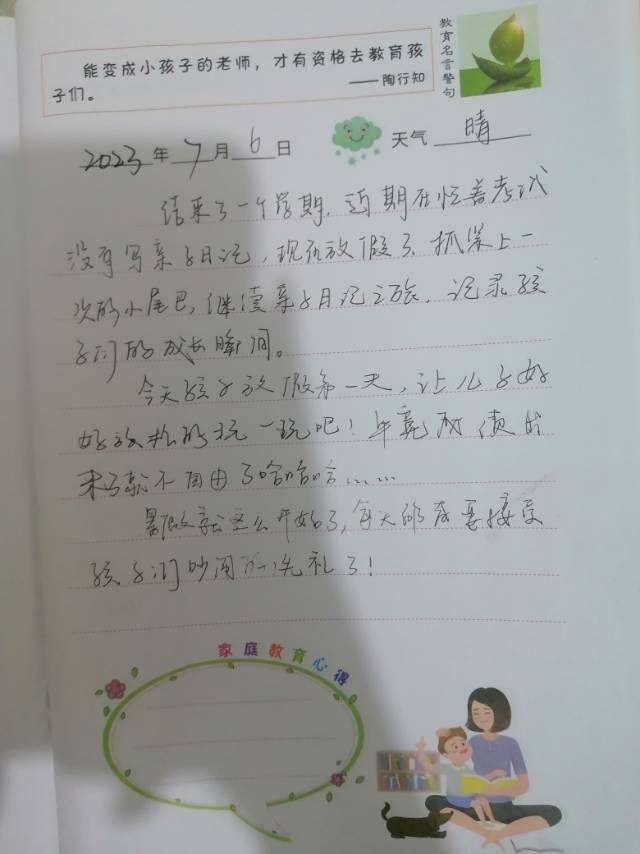 能变成小孩子的老师，才有资格去教育孩
子们。
——陶行知
教育名言警句
2023年7月6日 天气 晴
结束了一个学期，近期在忙着考试
没有写亲子日记，现在放假了，抓紧上一
次的小尾巴，继续亲子日记之旅，记录孩
子们的成长瞬间。
今天孩子放假第一天，让儿子好
好放松的玩一玩吧！毕竟成绩出
来了就不自由了哈哈哈……
暑假就这么开始了，每天都要接受
孩子们吵闹的洗礼了！
家庭教育心得